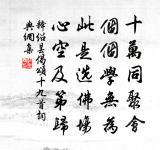 十萬同聚會
個個學無為
此是選佛場
心空及第歸
釋紹昙偈頌十九首詞
典網集